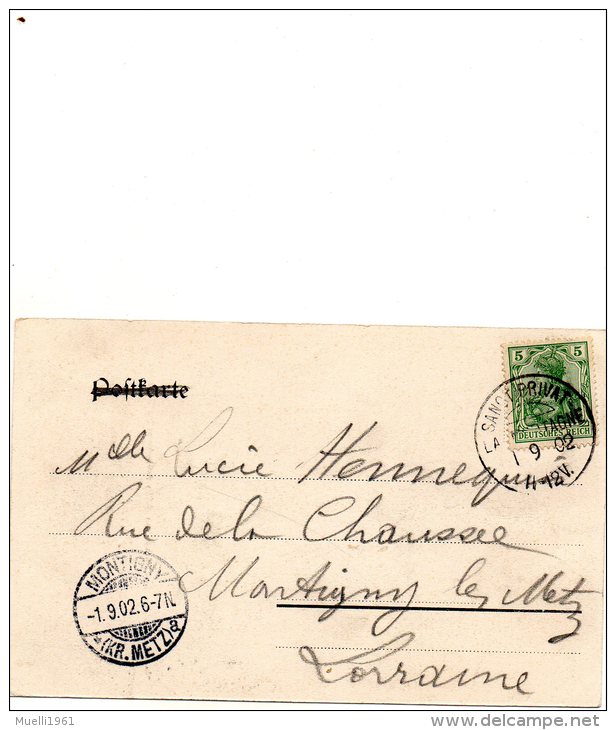 Postkarte
5 5
DEUTSCHES REICH
SANCT PRIVAT
LA MONTAGNE
1 9 02
11-12V.
Mdlle Lucie Hennequin
Rue de la Chaussée
Montigny les Metz
Lorraine
MONTIGNY
-1.9.02.6-7N.
(KR. METZ) a
Muelli1961
www.delcampe.net